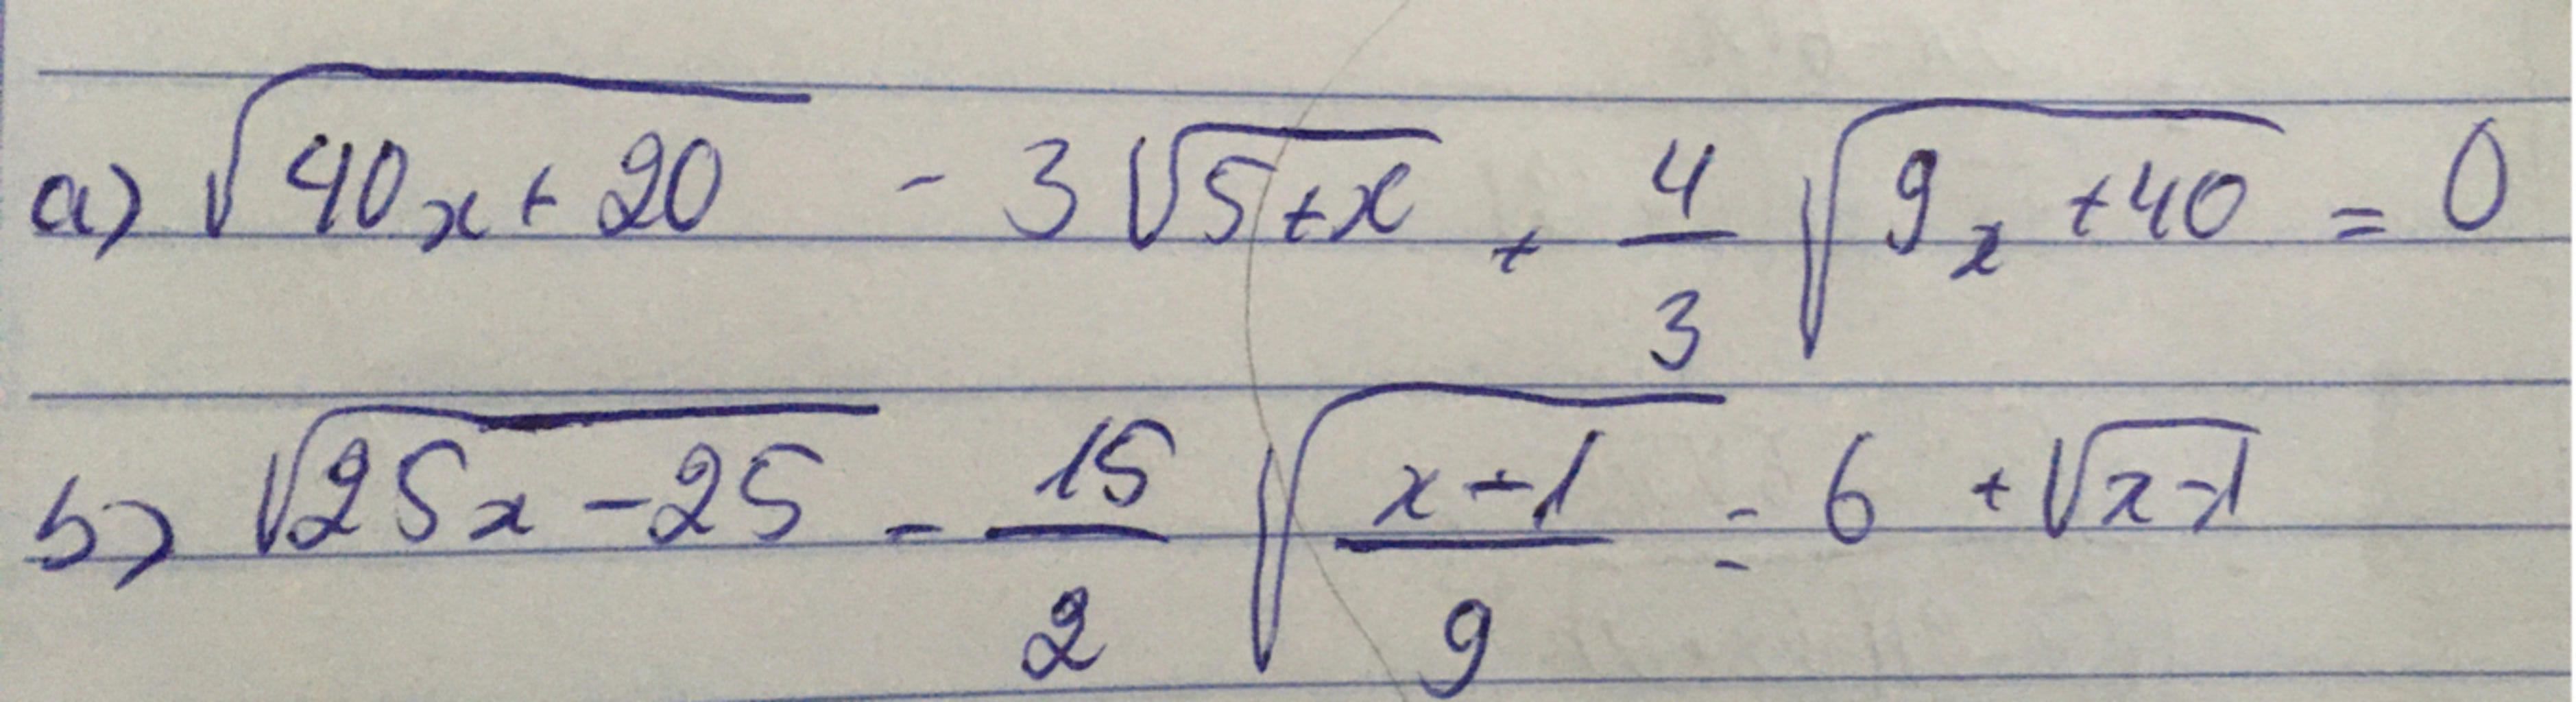 a) √(40x + 20) - 3√(5+x) + 4/3 √(9x + 40) = 0
b) √(25x - 25) - 15/2 √((x-1)/9) = 6 + √(x-1)